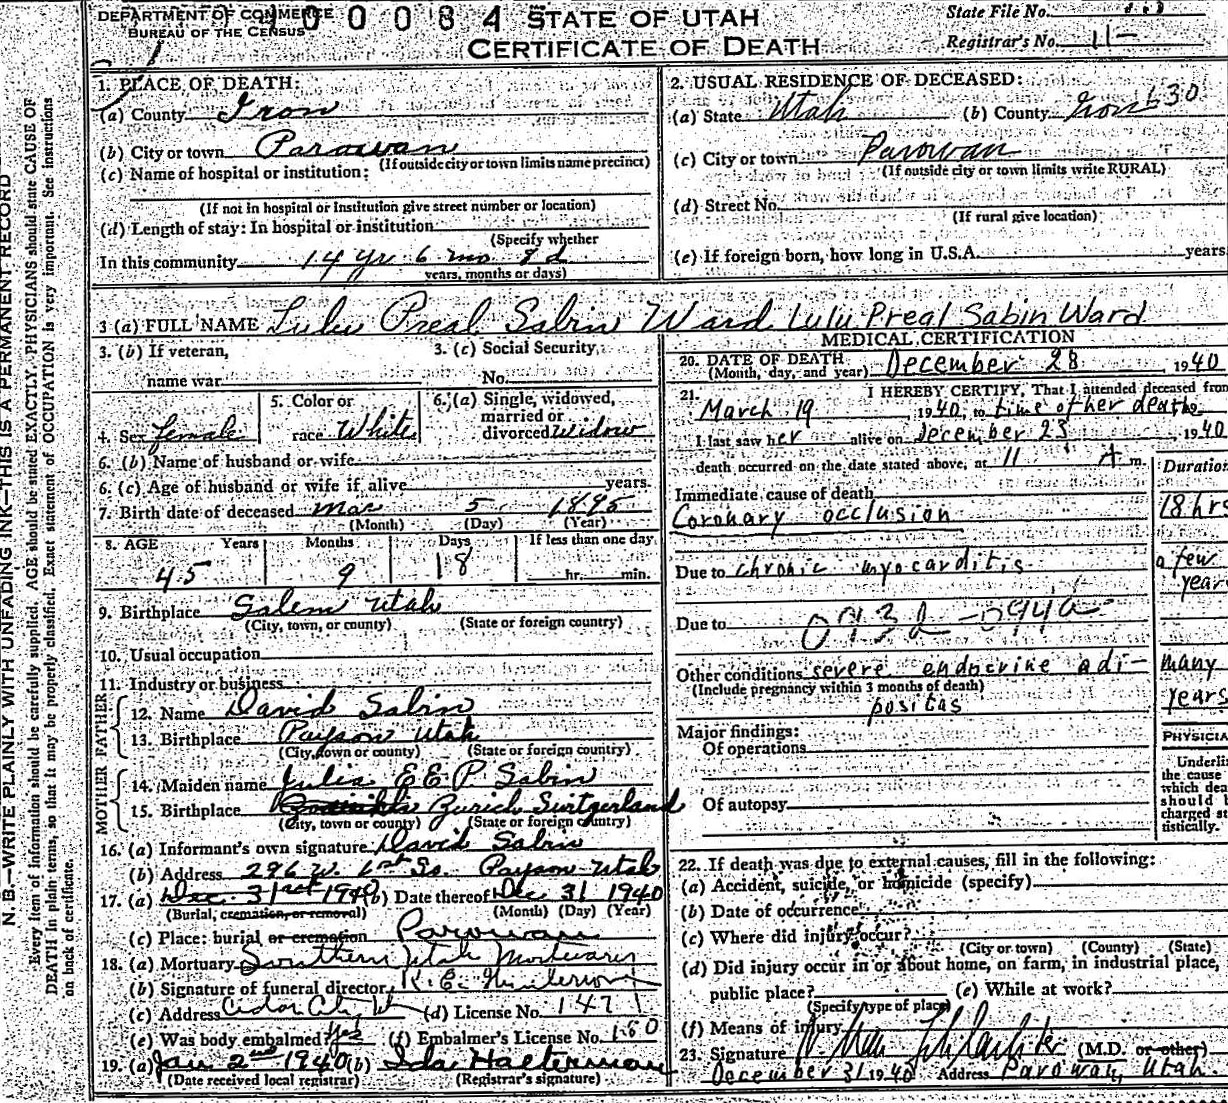 DEPARTMENT OF COMMERCE
BUREAU OF THE CENSUS
0 0 8 4
STATE OF UTAH
CERTIFICATE OF DEATH
State File No.
Registrar's No. 11-
N. B.—WRITE PLAINLY WITH UNFADING INK—THIS IS A PERMANENT RECORD
Every item of information should be carefully supplied. AGE should be stated EXACTLY. PHYSICIANS should state CAUSE OF
DEATH in plain terms, so that it may be properly classified. Exact statement of OCCUPATION is very important. See instructions
on back of certificate.
1. PLACE OF DEATH:
(a) County Iron
(b) City or town Parowan
(If outside city or town limits name precinct)
(c) Name of hospital or institution:
(If not in hospital or institution give street number or location)
(d) Length of stay: In hospital or institution
(Specify whether
In this community 14 yr 6 mo d
years, months or days)
2. USUAL RESIDENCE OF DECEASED:
(a) State Utah (b) County Iron 630
(c) City or town Parowan
(If outside city or town limits write RURAL)
(d) Street No.
(If rural give location)
(e) If foreign born, how long in U.S.A. years
3 (a) FULL NAME Lulu Preal Sabin Ward Lulu Preal Sabin Ward
3. (b) If veteran, name war
3. (c) Social Security No.
4. Sex female
5. Color or race White
6. (a) Single, widowed, married or divorced widow
6. (b) Name of husband or wife
6. (c) Age of husband or wife if alive years
7. Birth date of deceased Mar 5 1895
(Month) (Day) (Year)
8. AGE Years Months Days If less than one day
45 9 18 hr. min.
9. Birthplace Salem Utah
(City, town, or county) (State or foreign country)
10. Usual occupation
11. Industry or business
FATHER
12. Name David Sabin
13. Birthplace Payson Utah
(City, town or county) (State or foreign country)
MOTHER
14. Maiden name Julia E E P. Sabin
15. Birthplace Zurich Surtzerland
(City, town or county) (State or foreign country)
16. (a) Informant's own signature David Sabin
(b) Address 296 W. 1st So. Payson Utah
17. (a) Dec. 31st 1940 (b) Date thereof Dec 31 1940
(Burial, cremation, or removal) (Month) (Day) (Year)
(c) Place: burial or cremation Parowan
18. (a) Mortuary Southern Utah Mortuary
(b) Signature of funeral director
(c) Address Cedar City, Ut (d) License No. 147
(e) Was body embalmed? Yes (f) Embalmer's License No. 160
19. (a) Jan 2nd 1940 (b) Ida Halterman
(Date received local registrar) (Registrar's signature)
MEDICAL CERTIFICATION
20. DATE OF DEATH December 28, 1940
(Month, day, and year)
21. I HEREBY CERTIFY, That I attended deceased from
March 19, 1940, to time of her death, 19
I last saw her alive on December 23, 1940
death occurred on the date stated above, at 11 A m.
Duration
Immediate cause of death
Coronary occlusion 18 hrs
Due to chronic myocarditis a few year
Due to
Other conditions severe endocrine adi- many
(Include pregnancy within 3 months of death)
positas years
Major findings:
Of operations
Of autopsy
PHYSICIA
Underli
the cause
which dea
should b
charged st
tistically.
22. If death was due to external causes, fill in the following:
(a) Accident, suicide, or homicide (specify)
(b) Date of occurrence
(c) Where did injury occur?
(City or town) (County) (State)
(d) Did injury occur in or about home, on farm, in industrial place,
public place? (e) While at work?
(Specify type of place)
(f) Means of injury
23. Signature (M.D. or other)
December 31 1940 Address Parowan, Utah.